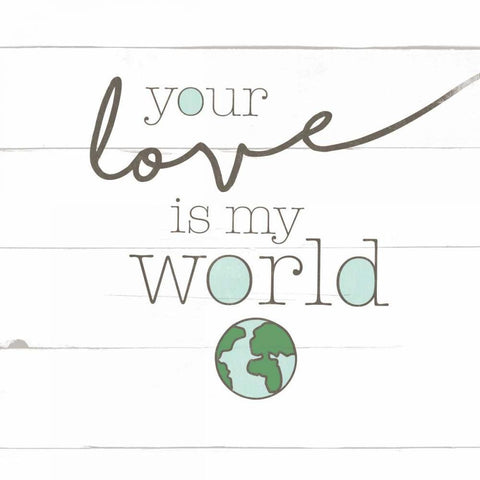 your
love
is my
world